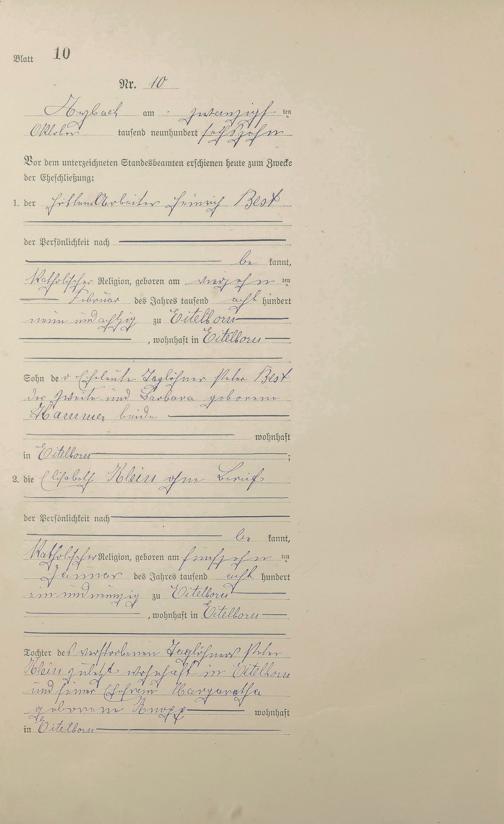 Blatt 10
Nr. 10
Arzbach am zwanzigsten
Oktober tausend neunhundert sechszehn
Vor dem unterzeichneten Standesbeamten erschienen heute zum Zwecke
der Eheschließung:
1. der Hüttenarbeiter Heinrich Best
der Persönlichkeit nach
be kannt,
Katholischer Religion, geboren am vierzehn ten
Februar des Jahres tausend acht hundert
neun und achtzig zu Eitelborn
, wohnhaft in Eitelborn
Sohn der Eheleute Taglöhner Peter Best
der Zweite und Barbara geborene
Hammer beide
wohnhaft
in Eitelborn ;
2. die Elisabeth Klein ohne Beruf
der Persönlichkeit nach
be kannt,
Katholischer Religion, geboren am fünfzehn ten
Januar des Jahres tausend acht hundert
ein und neunzig zu Eitelborn
, wohnhaft in Eitelborn
Tochter des verstorbenen Taglöhners Peter
Klein zuletzt wohnhaft in Eitelborn
und seiner Ehefrau Margaretha
geborene Knopp wohnhaft
in Eitelborn